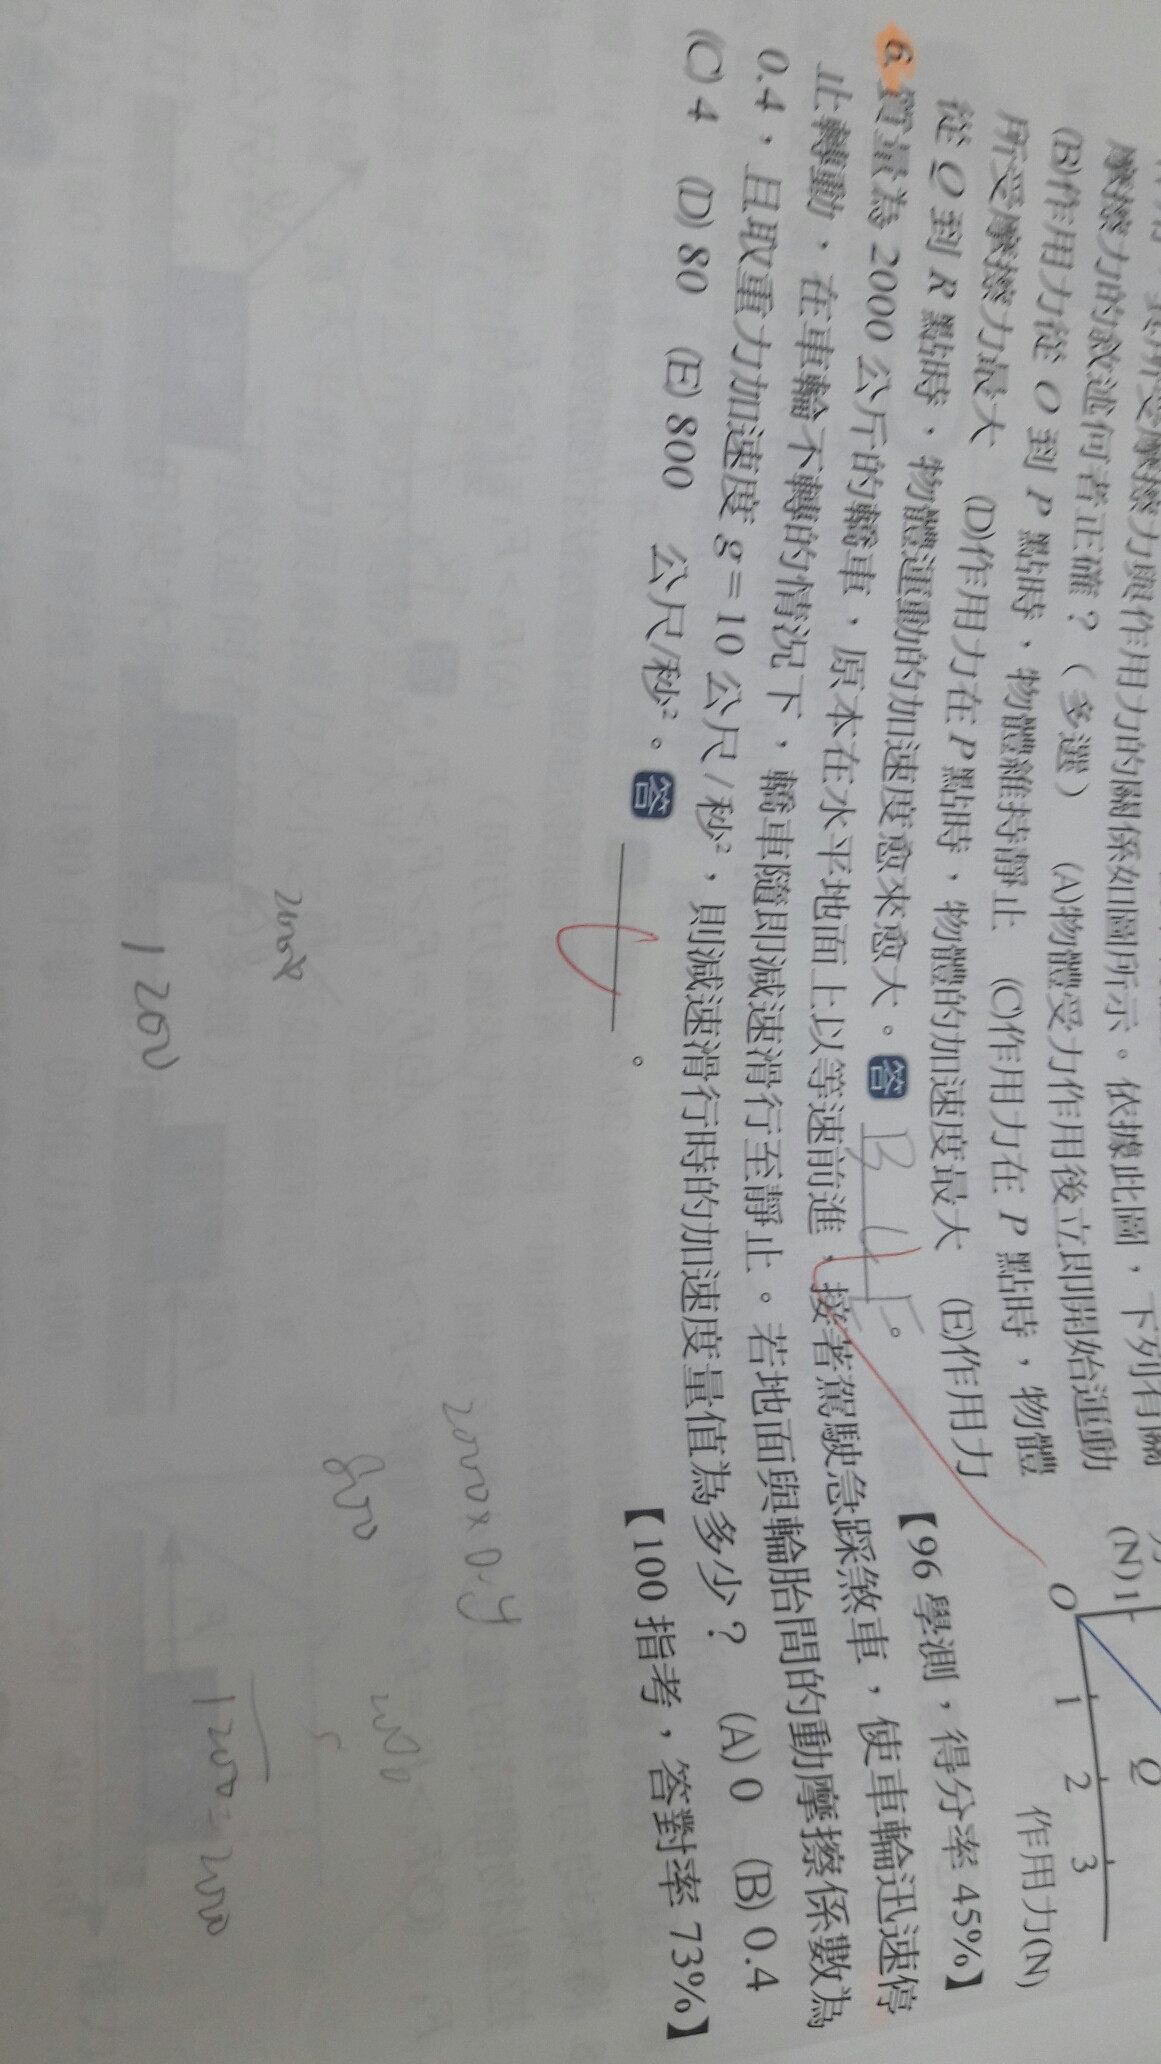 摩擦力的敘述何者正確？（多選） (A)物體受力作用後立即開始運動
(B)作用力從 O 到 P 點時，物體維持靜止 (C)作用力在 P 點時，物體
所受摩擦力最大 (D)作用力在 P 點時，物體的加速度最大 (E)作用力
從 Q 到 R 點時，物體運動的加速度愈來愈大。答 B
【96 學測，得分率 45%】
(N)
1
O 1 2 3
Q
作用力(N)
6. 質量為 2000 公斤的轎車，原本在水平地面上以等速前進，接著駕駛急踩煞車，使車輪迅速停
止轉動，在車輪不轉的情況下，轎車隨即減速滑行至靜止。若地面與輪胎間的動摩擦係數為
0.4，且取重力加速度 g＝10 公尺/秒²，則減速滑行時的加速度量值為多少？ (A) 0 (B) 0.4
(C) 4 (D) 80 (E) 800 公尺/秒²。答 C 。
【100 指考，答對率 73%】
2000×0.4
800
1200